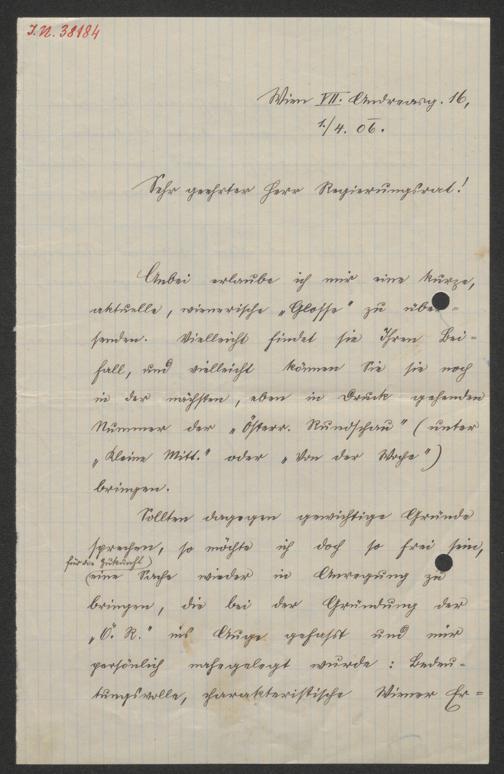 J.N. 38184
Wien VII. Andreasg. 16,
1./4. 06.
Sehr geehrter Herr Regierungsrat!
Anbei erlaube ich mir eine kurze,
aktuelle, wienerische „Glosse" zu über-
senden. Vielleicht findet sie Ihren Bei-
fall, und vielleicht können Sie sie noch
in der nächsten, eben in Druck gehenden
Nummer der „Österr. Rundschau" (unter
„Kleine Mitt." oder „Von der Woche")
bringen.
Sollten dagegen gewichtige Gründe
sprechen, so möchte ich doch so frei sein,
für die Zukunft
eine Sache wieder in Anregung zu
bringen, die bei der Gründung der
„Ö. R." ins Auge gefasst und mir
persönlich nahegelegt wurde: Bedeu-
tungsvolle, charakteristische Wiener Er-